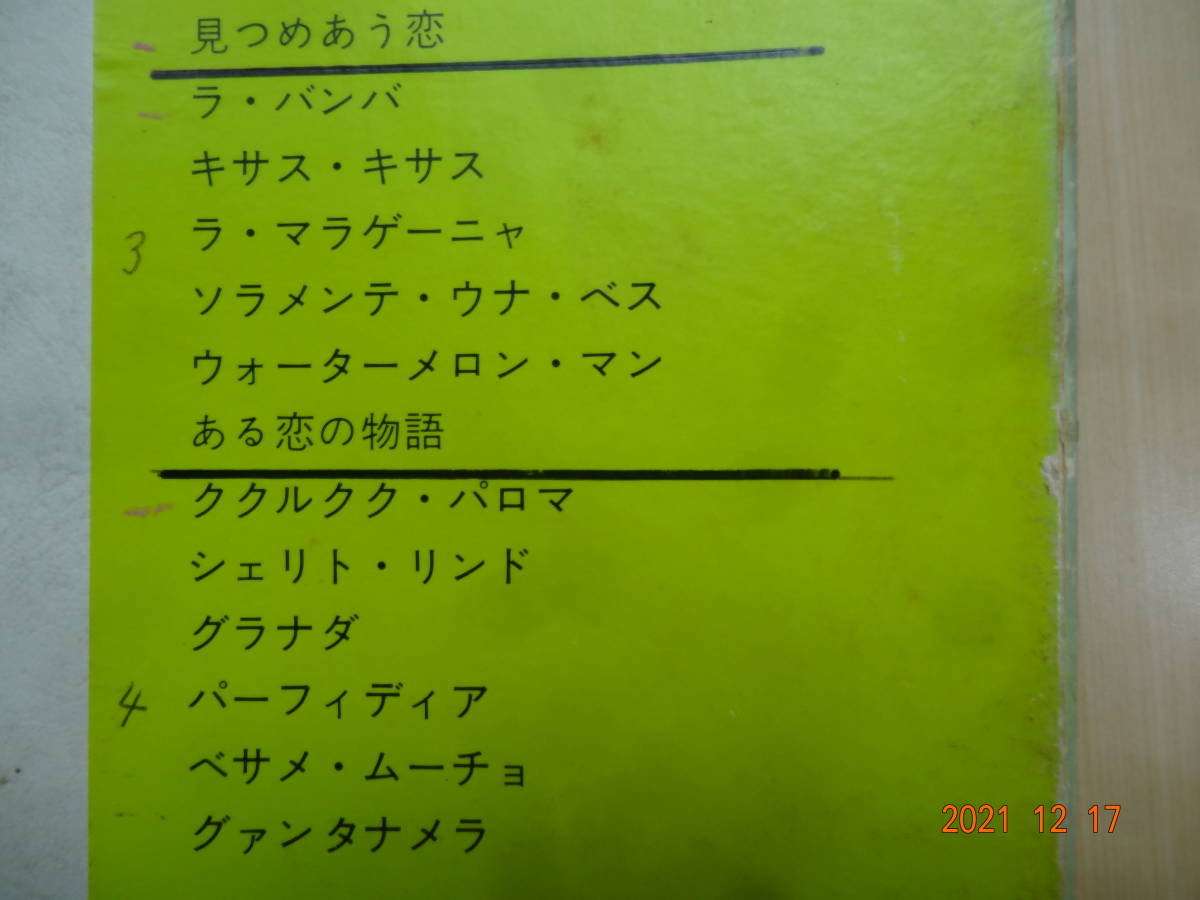 見つめあう恋
ラ・バンバ
キサス・キサス
3
ラ・マラゲーニャ
ソラメンテ・ウナ・ベス
ウォーターメロン・マン
ある恋の物語
ククルクク・パロマ
シェリト・リンド
グラナダ
4
パーフィディア
ベサメ・ムーチョ
グァンタナメラ
2021 12 17